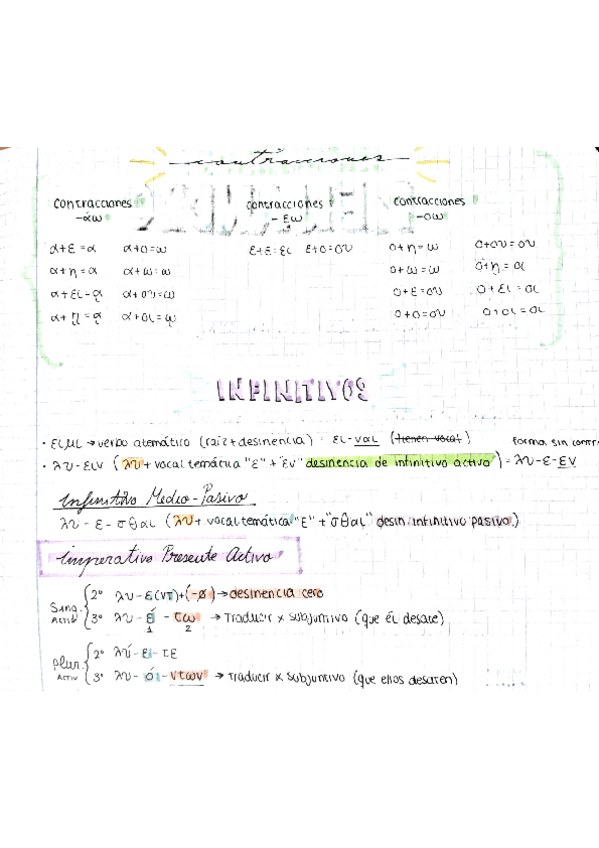 contracciones
contracciones -άω
contracciones -εω
contracciones -οω
α+ε=α α+ο=ω ε+ε=ει ε+ο=ου ο+η=ω ο+ου=ου
α+η=α α+ω=ω ο+ω=ω ο+ῃ=οι
α+ει=ᾳ α+ου=ω ο+ε=ου ο+ει=οι
α+ῃ=ᾳ α+οι=ῳ ο+ο=ου ο+οι=οι
INFINITIVOS
· ειμι → verbo atemático (raiz+desinencia) : ει-ναι (tienen vocal) forma sin contr
· λυ-ειν (λυ+ vocal temática "ε" + "εν" desinencia de infinitivo activo) = λυ-ε-εν
Infinitivo Medio-Pasivo
λυ-ε-σθαι (λυ+ vocal temática "ε" + "σθαι" desin. infinitivo pasivo)
Imperativo Presente Activo
Sing. Activ 2º λυ-ε(ντ)+(-ø) → desinencia cero
3º λυ-έ-τω → Traducir x subjuntivo (que él desate)
1 2
plur. Activ 2º λύ-ε-τε
3º λυ-ό-ντων → traducir x subjuntivo (que ellos desaten)